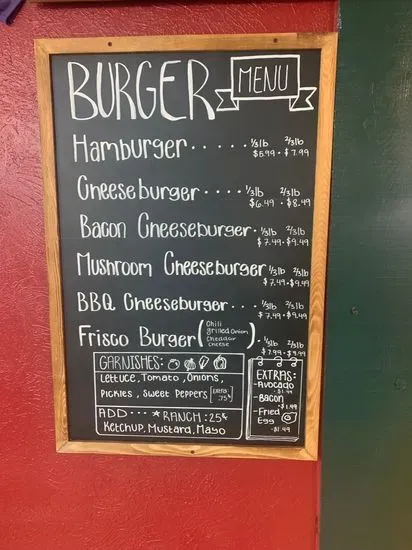 BURGER MENU
Hamburger ..... 1/3lb 2/3lb
$5.99 · $7.99
Cheeseburger .... 1/3lb 2/3lb
$6.49 · $8.49
Bacon Cheeseburger · 1/3lb 2/3lb
$7.49 · $9.49
Mushroom Cheeseburger 1/3lb 2/3lb
$7.49 · $9.49
BBQ Cheeseburger ... 1/3lb 2/3lb
$7.49 · $9.49
Frisco Burger (Chili
grilled onion
Cheddar
cheese) · 1/3lb 2/3lb
$7.99 · $9.99
GARNISHES:
Lettuce, Tomato, Onions,
Pickles, Sweet Peppers [EXTRA
.75¢]
ADD ... ★ RANCH: 25¢
Ketchup, Mustard, Mayo
EXTRAS:
-Avocado
-$1.49
-Bacon
-$1.49
-Fried
Egg
-$1.49